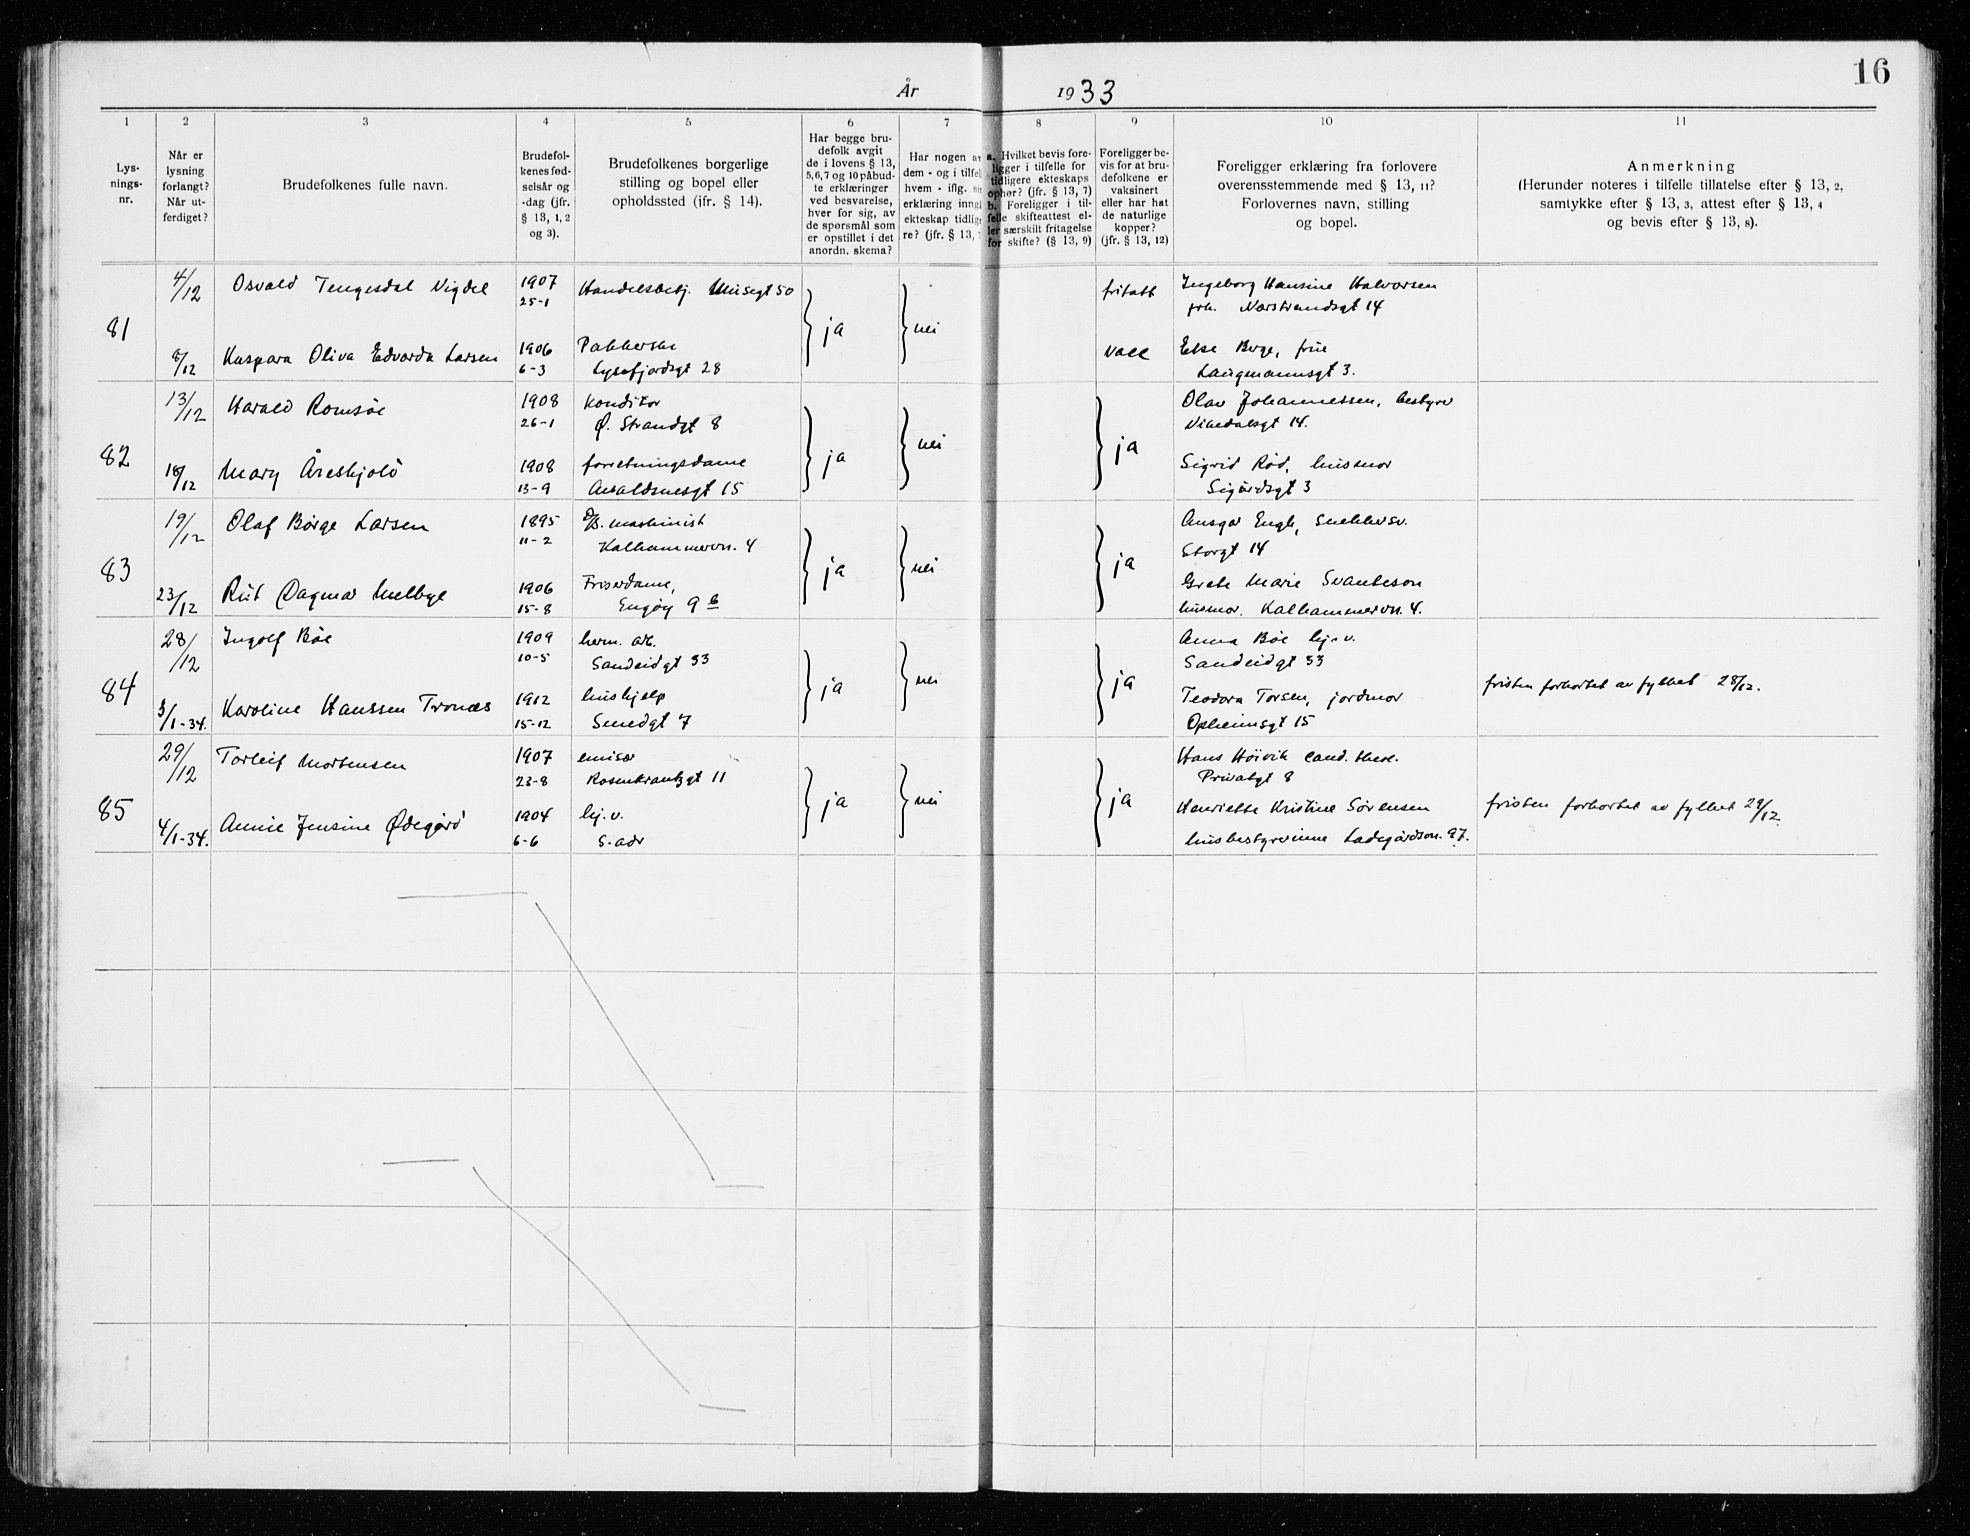 16
År 1933
1 2 3 4 5 6 7 8 9 10 11
Lys-
nings-
nr.
Når er
lysning
forlangt?
Når ut-
ferdiget?
Brudefolkenes fulle navn.
Brudefol-
kenes fød-
selsår og
-dag (jfr.
§ 13, 1, 2
og 3).
Brudefolkenes borgerlige
stilling og bopel eller
opholdssted (jfr. § 14).
Har begge bru-
defolk avgit
de i lovens § 13,
5,6,7 og 10 påbud-
te erklæringer
ved besvarelse,
hver for sig, av
de spørsmål som
er opstillet i det
anordn. skema?
Har nogen av
dem - og i tilfel
hvem - iflg. si
erklæring inng
ekteskap tidlige
re? (jfr. § 13,
a. Hvilket bevis fore-
ligger i tilfelle for
tidligere ekteskaps
ophør? (jfr. § 13, 7)
b. Foreligger i til-
felle skifteattest el-
ler særskilt fritagelse
for skifte? (§ 13, 9)
Foreligger be-
vis for at bru-
defolkene er
vaksinert
eller har hat
de naturlige
kopper?
(jfr. § 13, 12)
Foreligger erklæring fra forlovere
overensstemmende med § 13, 11?
Forlovernes navn, stilling
og bopel.
Anmerkning
(Herunder noteres i tilfelle tillatelse efter § 13, 2,
samtykke efter § 13, 3, attest efter § 13, 4
og bevis efter § 13, 8).
4/12 Osvald Tengesdal Vigdel 1907 Handelsbetj. Musegt 50 fritatt Ingeborg Hansine Halvorsen
25-1 frk. Narstrandsgt 14
81 ja nei
8/12 Kaspara Oliva Edvarda Larsen 1906 Pakkerske vacc Else Berge, frue
6-3 Lysefjordsgt 28 Laugmannsgt 3.
13/12 Harald Romsøe 1908 Konditor Olav Johannessen, bestyrer
26-1 Ø. Strandgt 8 Vikedalsgt 14.
82 ja nei ja
18/12 Mary Åreskjold 1908 forretningsdame Sigrid Rød, husmor
13-9 Avaldsnesgt 15 Sigurdsgt 3
19/12 Olaf Børge Larsen 1895 D/S. maskinist Ansgar Engh, snekkersv.
11-2 Kalhammervn. 4 Storgt 14
83 ja nei ja
23/12 Rut Dagmar Melbye 1906 Friserdame, Grete Marie Svanteson
15-8 Engøy 9 b husmor. Kalhammervn. 4.
28/12 Ingolf Bøe 1909 herm. arb. Anna Bøe hj. v.
10-5 Sandeidgt 33 Sandeidgt 33
84 ja nei ja fristen forkortet av fylket 28/12.
3/1-34. Karoline Hanssen Tronæs 1912 hushjelp Teodora Torsen, jordmor
15-12 Smedgt 7 Opheimsgt 15
29/12 Torleif Mortensen 1907 emisær Hans Høivik cand. theol.
23-8 Rosenkrantzgt 11 Privatgt 8
85 ja nei ja fristen forkortet av fylket 29/12.
4/1-34. Annie Jensine Ødegård 1904 hj. v. Henriette Kristine Sørensen
6-6 S. adr husbestyrerinne Ladegårdson. 97.